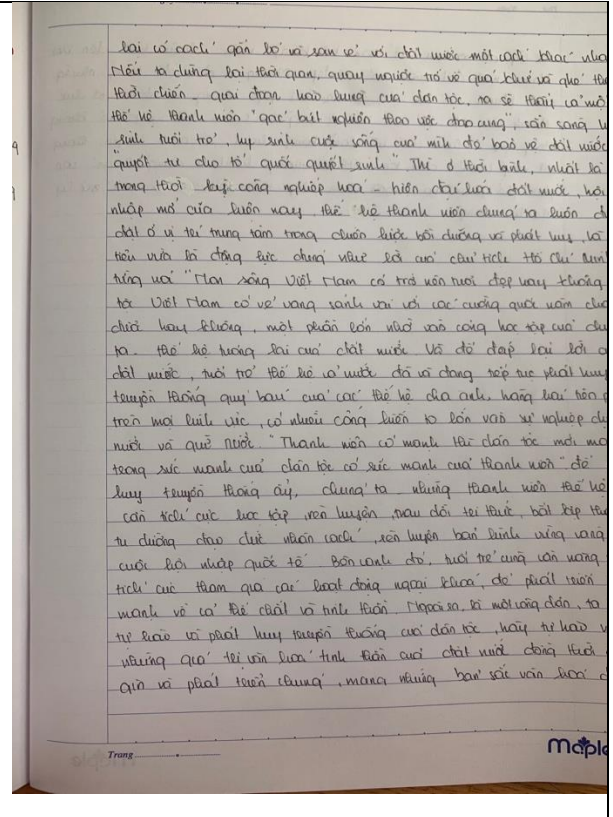 lại có cách gắn bó và san sẻ với đất nước một cách khác nha
Nếu ta dừng lại thời gian, quay ngược trở về quá khứ và ghé th
thời chiến - giai đoạn hào hùng của dân tộc, ta sẽ thấy cả một
thế hệ thanh niên "gác bút nghiên theo việc đao cung", sẵn sàng h
sinh tuổi trẻ, hy sinh cuộc sống của mình để bảo vệ đất nước
"quyết tử cho tổ quốc quyết sinh". Thì ở thời bình, nhất là
trong thời kỳ công nghiệp hoá - hiện đại hoá đất nước, hội
nhập mở cửa hiện nay, thế hệ thanh niên chúng ta luôn đ
đặt ở vị trí trung tâm trong chiến lược bồi dưỡng và phát huy, là
tiêu vừa là động lực chúng như lời của chủ tịch Hồ Chí Minh
từng nói "Non sông Việt Nam có trở nên tươi đẹp hay không
tộc Việt Nam có vẻ vang sánh vai với các cường quốc năm châ
được hay không, một phần lớn nhờ vào công học tập của ch
ta - thế hệ tương lai của đất nước. Và để đáp lại lời
đất nước, tuổi trẻ thế hệ cả nước đã và đang tiếp tục phát huy
truyền thống quý báu của các thế hệ cha anh, hăng hái tiên p
trên mọi lĩnh vực, có nhiều cống hiến to lớn vào sự nghiệp dự
nước và giữ nước. "Thanh niên có mạnh thì dân tộc mới mạ
trong sức mạnh của dân tộc có sức mạnh của thanh niên" để
huy truyền thống ấy, chúng ta những thanh niên thế hệ
cần tích cực học tập, rèn luyện, trau dồi tri thức, bắt kịp th
tu dưỡng đạo đức nhân cách, rèn luyện bản lĩnh vững vàng
cuộc hội nhập quốc tế. Bên cạnh đó, tuổi trẻ cũng cần năng
tích cực tham gia các hoạt động ngoại khoá, để phát triển
mạnh về cả thể chất và tinh thần. Ngoài ra, là một công dân, ta
tự hào và phát huy truyền thống của dân tộc, hãy tự hào v
những giá trị văn hoá tinh thần của đất nước đồng thời
gìn và phát triển chúng, mang những bản sắc văn hoá d
Trang
Maple